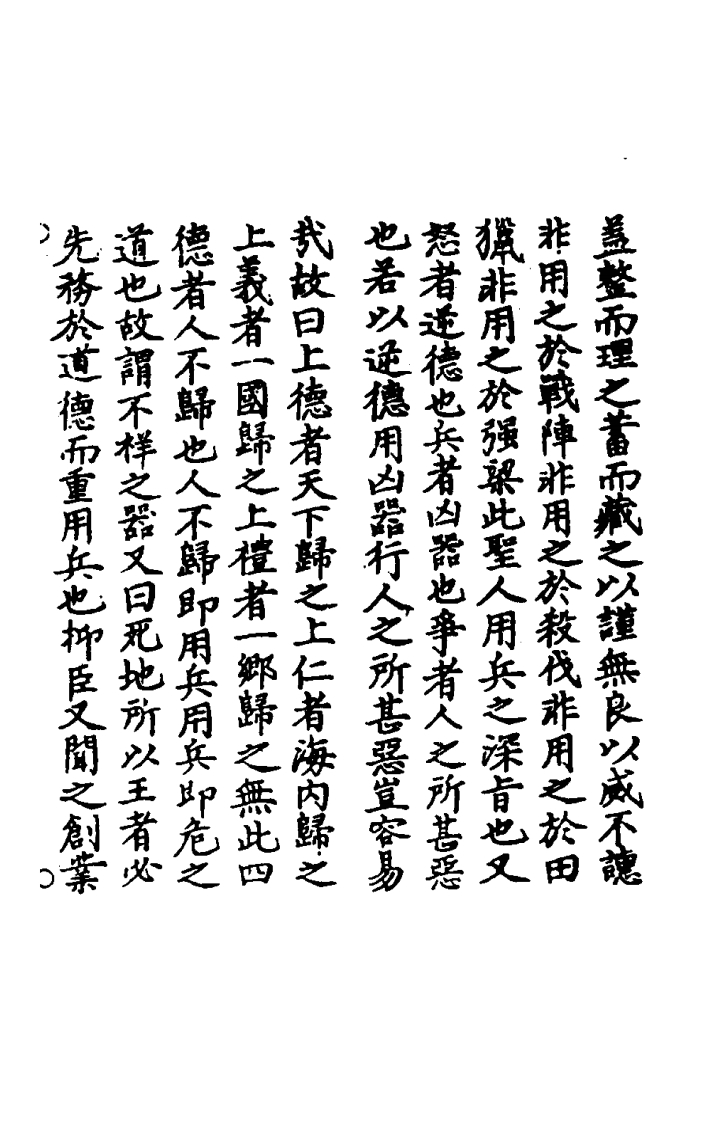 蓋整而理之蓄而藏之以謹無良以威不譓
非用之於戰陣非用之於殺伐非用之於田
獵非用之於强梁此聖人用兵之深旨也又
怒者逆德也兵者凶器也爭者人之所甚惡
也若以逆德用凶器行人之所甚惡豈容易
㢤故曰上德者天下歸之上仁者海内歸之
上義者一國歸之上禮者一鄉歸之無此四
德者人不歸也人不歸即用兵用兵即危之
道也故謂不祥之器又曰死地所以王者必
先務於道德而重用兵也抑臣又聞之創業